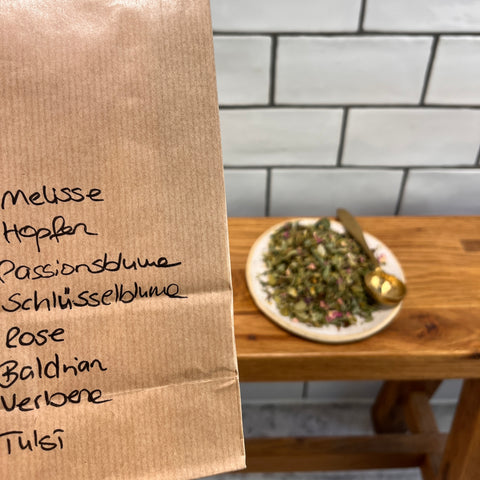 Melisse
Hopfen
Passionsblume
Schlüsselblume
Rose
Baldrian
Verbene
Tulsi